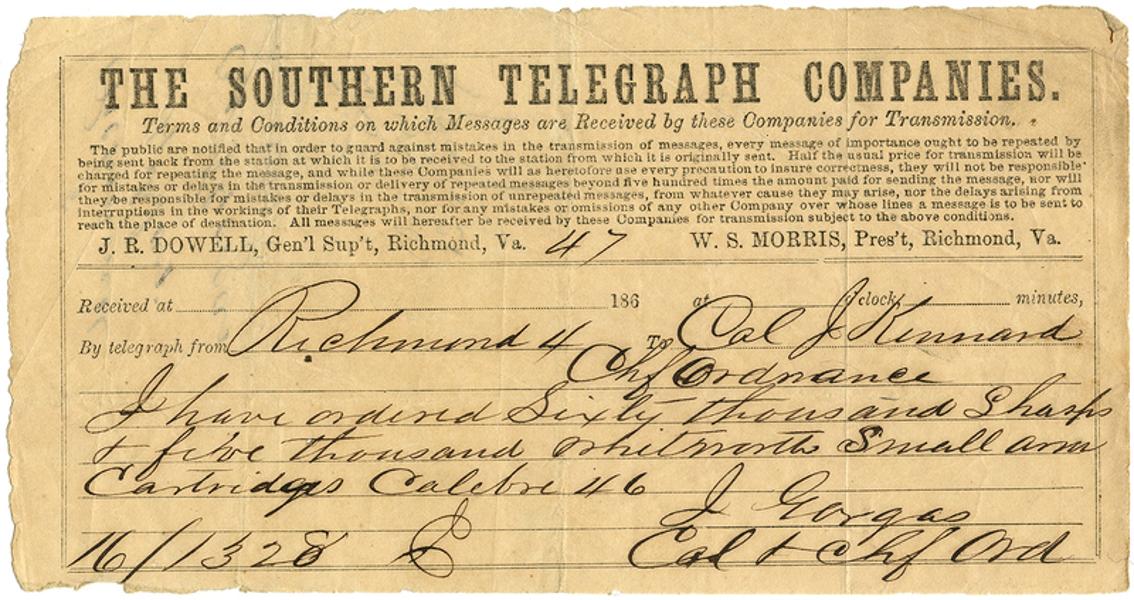 THE SOUTHERN TELEGRAPH COMPANIES.
Terms and Conditions on which Messages are Received by these Companies for Transmission.
The public are notified that in order to guard against mistakes in the transmission of messages, every message of importance ought to be repeated by
being sent back from the station at which it is to be received to the station from which it is originally sent. Half the usual price for transmission will be
charged for repeating the message, and while these Companies will as heretofore use every precaution to insure correctness, they will not be responsible
for mistakes or delays in the transmission or delivery of repeated messages beyond five hundred times the amount paid for sending the message, nor will
they be responsible for mistakes or delays in the transmission of unrepeated messages, from whatever cause they may arise, nor the delays arising from
interruptions in the workings of their Telegraphs, nor for any mistakes or omissions of any other Company over whose lines a message is to be sent to
reach the place of destination. All messages will hereafter be received by these Companies for transmission subject to the above conditions.
J. R. DOWELL, Gen'l Sup't, Richmond, Va. 47 W. S. MORRIS, Pres't, Richmond, Va.
Received at 186 at o'clock, minutes,
By telegraph from Richmond 4 To Col J Kennard
Chf Ordnance
I have ordered Sixty thousand Sharps
& five thousand Whitworth Small arm
Cartridges Calebre 46
J Gorgas
16/1328 Col & Chf Ord